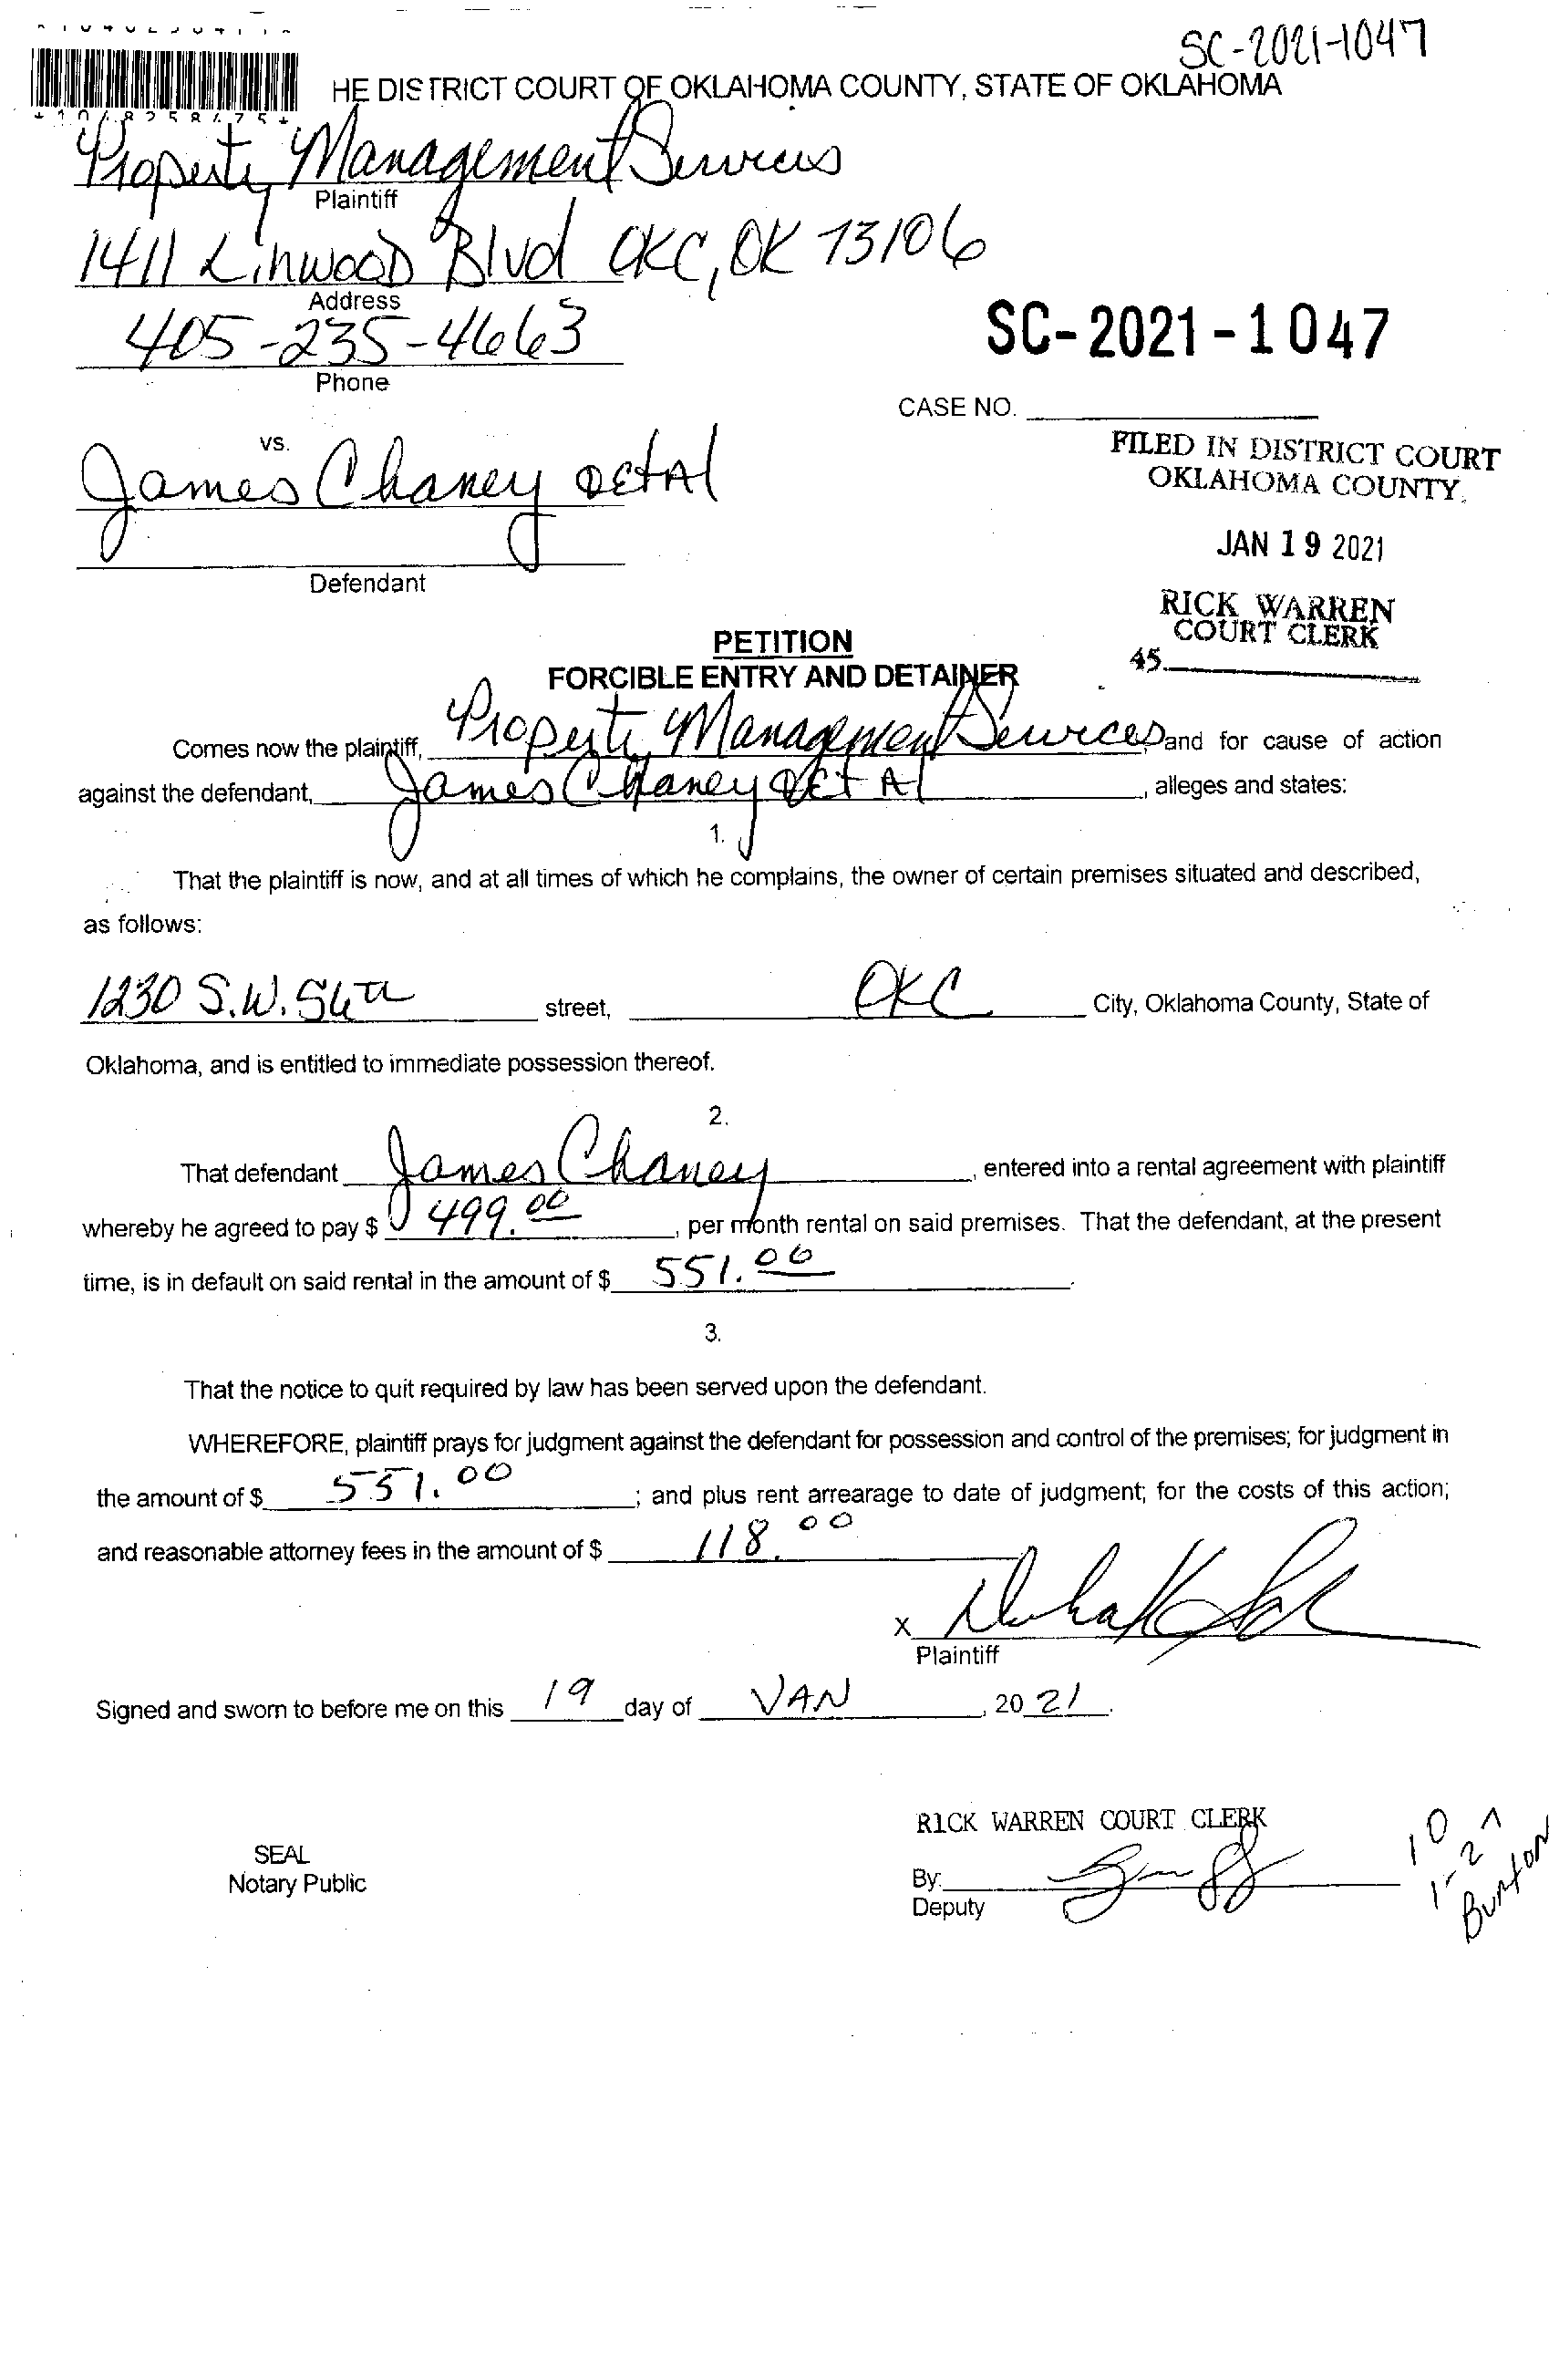 SC-2021-1047
HE DISTRICT COURT OF OKLAHOMA COUNTY, STATE OF OKLAHOMA
Property Management Services
Plaintiff
1411 Linwood Blvd OKC, OK 73106
Address
405-235-4663
Phone
SC-2021-1047
CASE NO.
FILED IN DISTRICT COURT
OKLAHOMA COUNTY
JAN 19 2021
RICK WARREN
COURT CLERK
45
vs.
James Chaney et Al
Defendant
PETITION
FORCIBLE ENTRY AND DETAINER
Comes now the plaintiff, Property Management Services, and for cause of action
against the defendant, James Chaney et Al, alleges and states:
1.
That the plaintiff is now, and at all times of which he complains, the owner of certain premises situated and described,
as follows:
1230 S.W. street, OKC City, Oklahoma County, State of
Oklahoma, and is entitled to immediate possession thereof.
2.
That defendant James Chaney, entered into a rental agreement with plaintiff
whereby he agreed to pay $ 499.00, per month rental on said premises. That the defendant, at the present
time, is in default on said rental in the amount of $ 551.00.
3.
That the notice to quit required by law has been served upon the defendant.
WHEREFORE, plaintiff prays for judgment against the defendant for possession and control of the premises; for judgment in
the amount of $ 551.00; and plus rent arrearage to date of judgment; for the costs of this action;
and reasonable attorney fees in the amount of $ 118.00
x
Plaintiff
Signed and sworn to before me on this 19 day of JAN, 20 21.
RICK WARREN COURT CLERK
SEAL
Notary Public
By:
Deputy
10
1-27
Burton